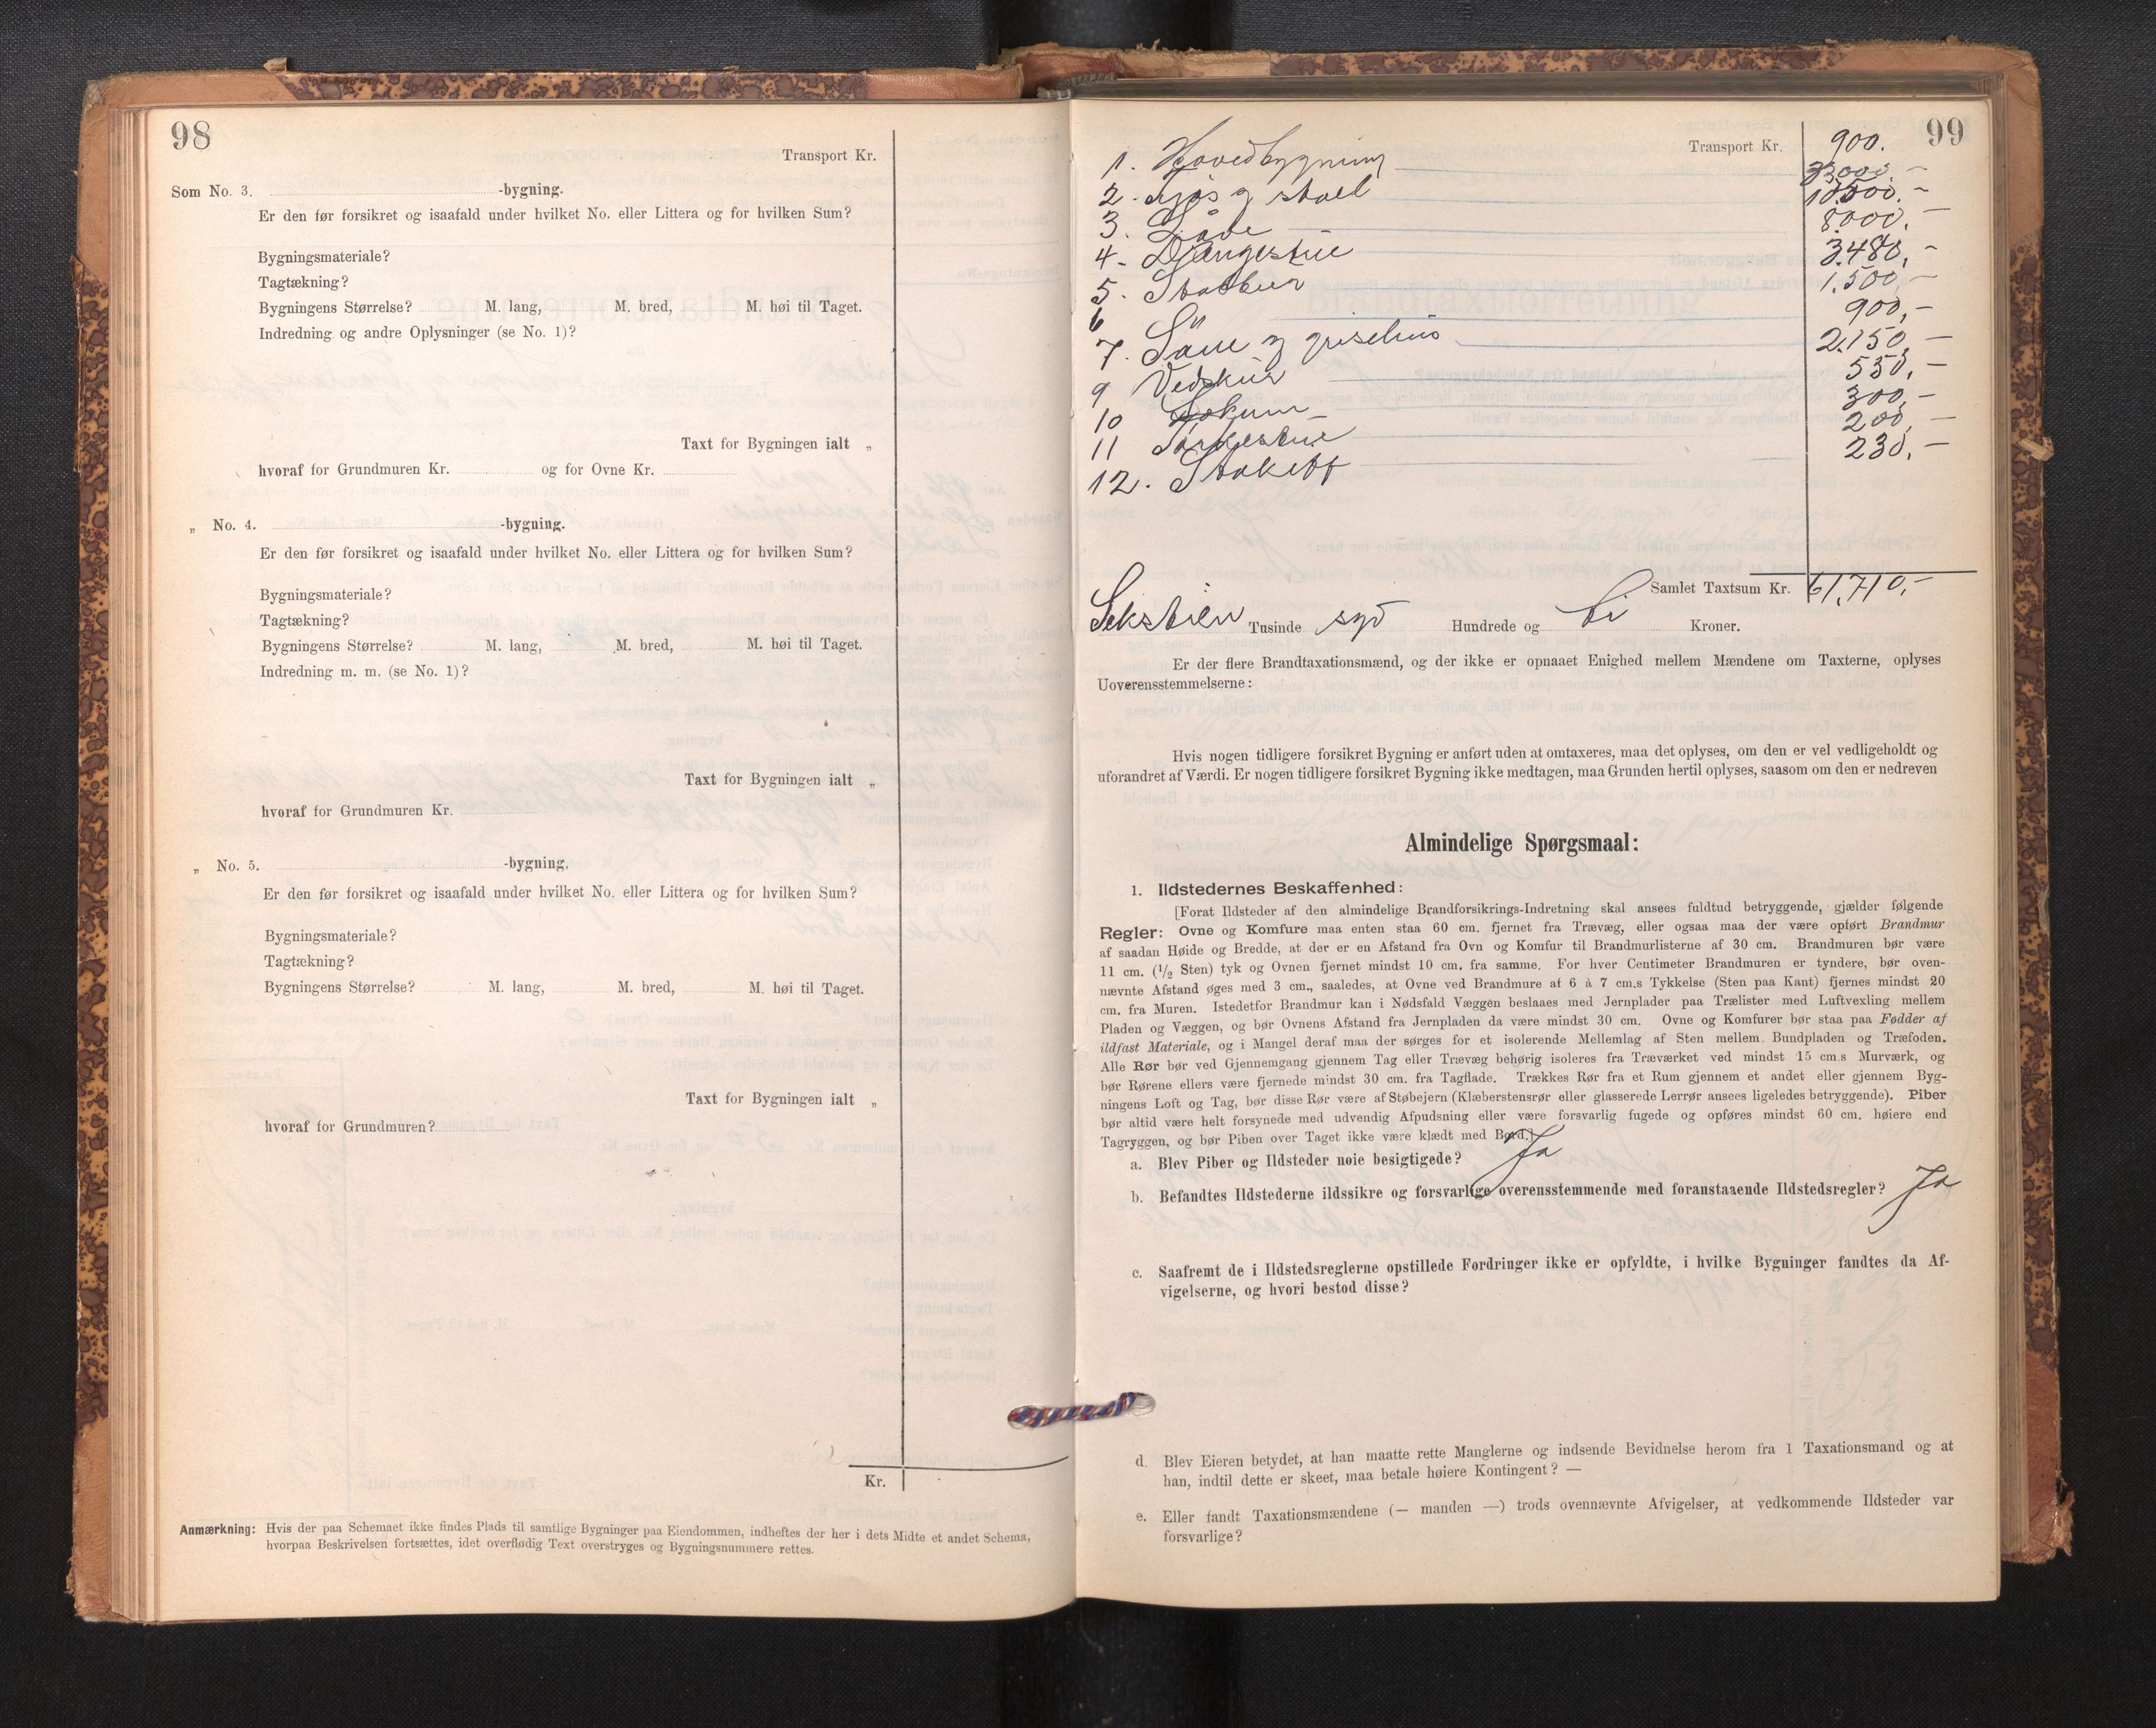 98
Transport Kr.
Som No. 3. -bygning.
Er den før forsikret og isaafald under hvilket No. eller Littera og for hvilken Sum?
Bygningsmateriale?
Tagtækning?
Bygningens Størrelse? M. lang, M. bred, M. høi til Taget.
Indredning og andre Oplysninger (se No. 1)?
Taxt for Bygningen ialt „
hvoraf for Grundmuren Kr. og for Ovne Kr.
„ No. 4. -bygning.
Er den før forsikret og isaafald under hvilket No. eller Littera og for hvilken Sum?
Bygningsmateriale?
Tagtækning?
Bygningens Størrelse? M. lang, M. bred, M. høi til Taget.
Indredning m. m. (se No. 1)?
Taxt for Bygningen ialt „
hvoraf for Grundmuren Kr.
„ No. 5. -bygning.
Er den før forsikret og isaafald under hvilket No. eller Littera og for hvilken Sum?
Bygningsmateriale?
Tagtækning?
Bygningens Størrelse? M. lang, M. bred, M. høi til Taget.
Taxt for Bygningen ialt „
hvoraf for Grundmuren?
Kr.
Anmærkning: Hvis der paa Schemaet ikke findes Plads til samtlige Bygninger paa Eiendommen, indheftes der her i dets Midte et andet Schema,
hvorpaa Beskrivelsen fortsættes, idet overflødig Text overstryges og Bygningsnummere rettes.
99
Transport Kr. 900.
1. Hovedbygning 33000. -
2. Fjøs og stall 10.500. -
3. Låve 8.000, -
4. Drengestue 3.480, -
5. Stabbur 1.500, -
6 900, -
7. Saue og grisehus 2.150, -
9 Vedskur 550, -
10 300, -
11 200, -
12. Stakitt 230, -
Samlet Taxtsum Kr. 61,710, -
Sekstien Tusinde syv Hundrede og ti Kroner.
Er der flere Brandtaxationsmænd, og der ikke er opnaaet Enighed mellem Mændene om Taxterne, oplyses
Uoverensstemmelserne:
Hvis nogen tidligere forsikret Bygning er anført uden at omtaxeres, maa det oplyses, om den er vel vedligeholdt og
uforandret af Værdi. Er nogen tidligere forsikret Bygning ikke medtagen, maa Grunden hertil oplyses, saasom om den er nedreven
Almindelige Spørgsmaal:
1. Ildstedernes Beskaffenhed:
[Forat Ildsteder af den almindelige Brandforsikrings-Indretning skal ansees fuldtud betryggende, gjælder følgende
Regler: Ovne og Komfure maa enten staa 60 cm. fjernet fra Trævæg, eller ogsaa maa der være opført Brandmur
af saadan Høide og Bredde, at der er en Afstand fra Ovn og Komfur til Brandmurlisterne af 30 cm. Brandmuren bør være
11 cm. (1/2 Sten) tyk og Ovnen fjernet mindst 10 cm. fra samme. For hver Centimeter Brandmuren er tyndere, bør oven-
nævnte Afstand øges med 3 cm., saaledes, at Ovne ved Brandmure af 6 à 7 cm.s Tykkelse (Sten paa Kant) fjernes mindst 20
cm. fra Muren. Istedetfor Brandmur kan i Nødsfald Væggen beslaaes med Jernplader paa Trælister med Luftvexling mellem
Pladen og Væggen, og bør Ovnens Afstand fra Jernpladen da være mindst 30 cm. Ovne og Komfurer bør staa paa Fødder af
ildfast Materiale, og i Mangel deraf maa der sørges for et isolerende Mellemlag af Sten mellem Bundpladen og Træfoden.
Alle Rør bør ved Gjennemgang gjennem Tag eller Trævæg behørig isoleres fra Træværket ved mindst 15 cm.s Murværk, og
bør Rørene ellers være fjernede mindst 30 cm. fra Tagflade. Trækkes Rør fra et Rum gjennem et andet eller gjennem Byg-
ningens Loft og Tag, bør disse Rør være af Støbejern (Klæberstensrør eller glasserede Lerrør ansees ligeledes betryggende). Piber
bør altid være helt forsynede med udvendig Afpudsning eller være forsvarlig fugede og opføres mindst 60 cm. høiere end
Tagryggen, og bør Piben over Taget ikke være klædt med Bord.]
a. Blev Piber og Ildsteder nøie besigtigede? Ja
b. Befandtes Ildstederne ildssikre og forsvarlige overensstemmende med foranstaaende Ildstedsregler? Ja
c. Saafremt de i Ildstedsreglerne opstillede Fordringer ikke er opfyldte, i hvilke Bygninger fandtes da Af-
vigelserne, og hvori bestod disse?
d. Blev Eieren betydet, at han maatte rette Manglerne og indsende Bevidnelse herom fra 1 Taxationsmand og at
han, indtil dette er skeet, maa betale høiere Kontingent? —
e. Eller fandt Taxationsmændene (— manden —) trods ovennævnte Afvigelser, at vedkommende Ildsteder var
forsvarlige?